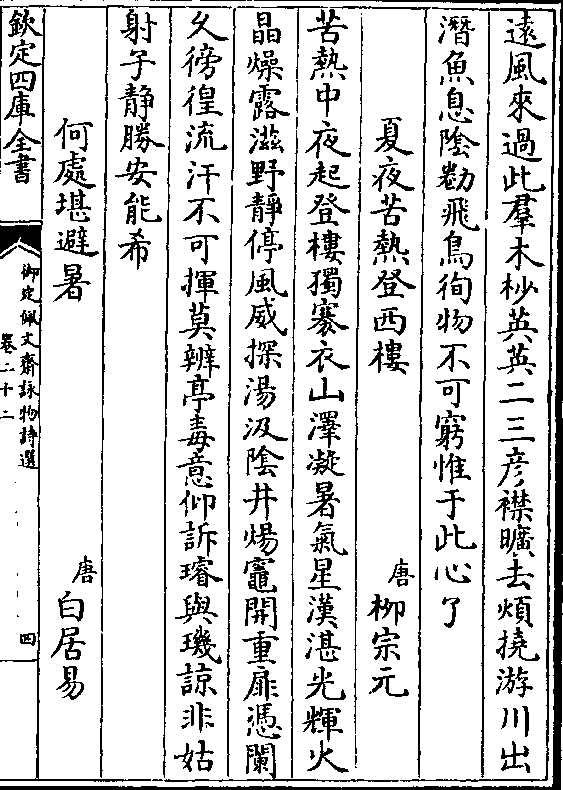 遠風來過此羣木杪英英二三彦襟曠去煩撓游川出
潛魚息陰勌飛鳥徇物不可窮惟于此心了
夏夜苦熱登西樓　唐　柳宗元
苦熱中夜起登樓獨褰衣山澤凝暑氣星漢湛光輝火
晶燥露滋野靜停風威探湯汲陰井煬竈開重扉憑闌
久徬徨流汗不可揮莫辨亭毒意仰訴璿與璣諒非姑
射子靜勝安能希
何處堪避暑　唐　白居易
欽定四庫全書
御定佩文齋詠物詩選
卷二十二
四